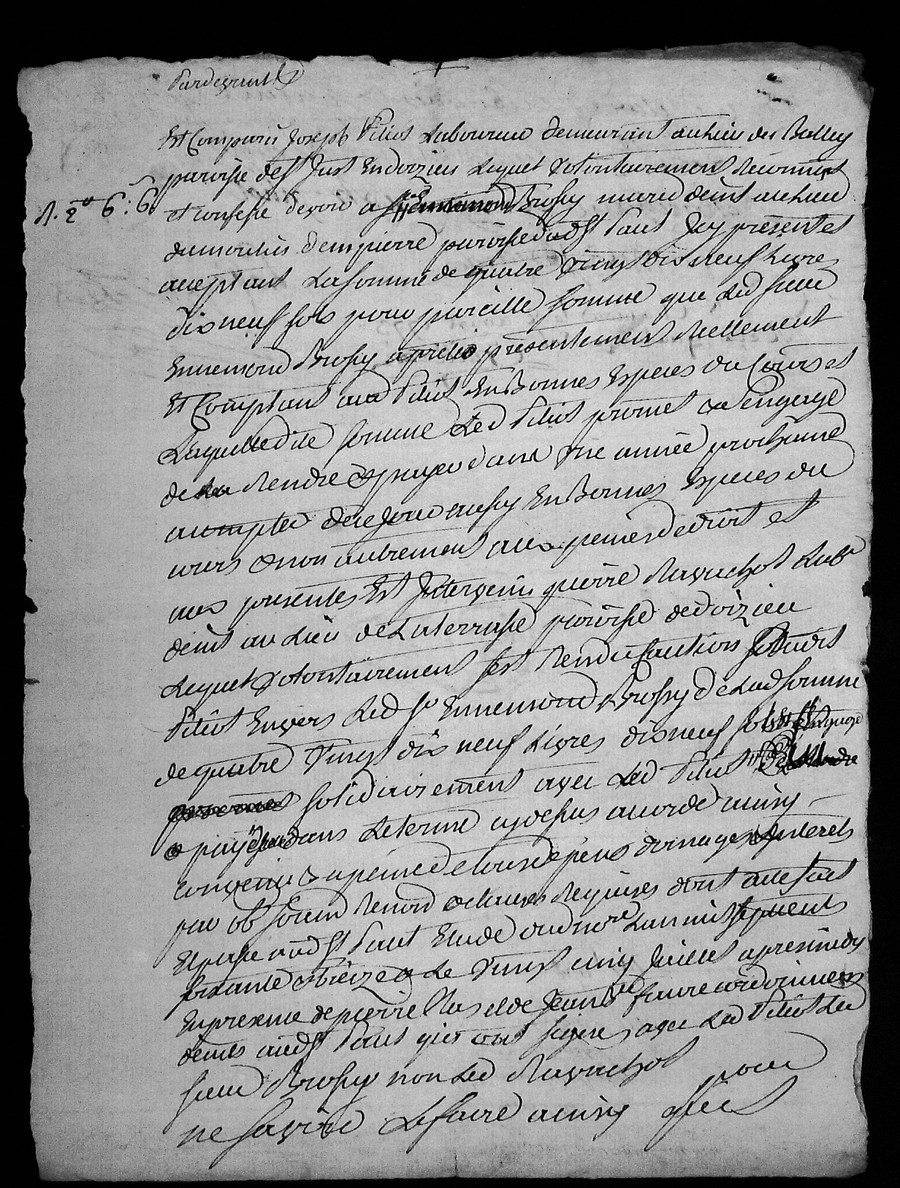 Pardevant
Est Comparu Joseph Pitiot Laboureur demeurant au lieu des
paroisse de st Just En doizieu Lequel volontairement Reconnut
R. 2° 6: 6
et confesse devoir a sr Ennemond Brossy marid demt au lieu
du moulin dempierre paroisse dudt st Paul Icy present et
acceptant La somme de quatre vingt dix neuf livres
dix neuf sols pour pareille somme que Led sieur
Ennemond Brossy a prete presentement Reellement
Et Comptant aud Pitiot En Bonnes Especes du Cours et
Laquelledite somme Led Pitiot promet et s'engage
de La Rendre & payer dans une année prochaine
a compter de ce jour En Bonnes Especes du
cours & non autrement aux peines de droit et
aux presentes Est Intervenu pierre Ravachol Labr
demt au Lieu de Laterrasse paroisse de doizieu
Lequel volontairement sest Rendu Caution dudit
Pitiot Envers Led Sr Ennemond Brossy de Lad somme
de quatre vingt dix neuf Livres dix neuf sols et s'engage
solidairement avec Led Pitiot rendre
& payer dans Le terme cy dessus accordé ainsy
convenu a peine de tous depens domages Interets
par obon soumon Renonon & clauses Requises dont acte fait
Et passé audt st Paul Etude dud nore Lan mil sept cent
soixante & treize & Le vingt cinq Juillet apres midy
En presence de pierre et de Jean faure cordonniers
demts audt st Paul qui ont signé avec Led Pitiot Led
sieur Brossy non Led Ravachol pour
ne savoir Le faire ainsy